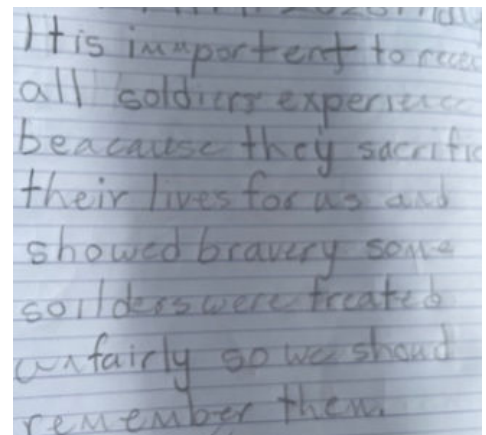 It is immportent to
all soldiers experience
beacause they sacrific
their lives for us and
showed bravery some
soilders were treated
unfairly so we shoud
remember them.